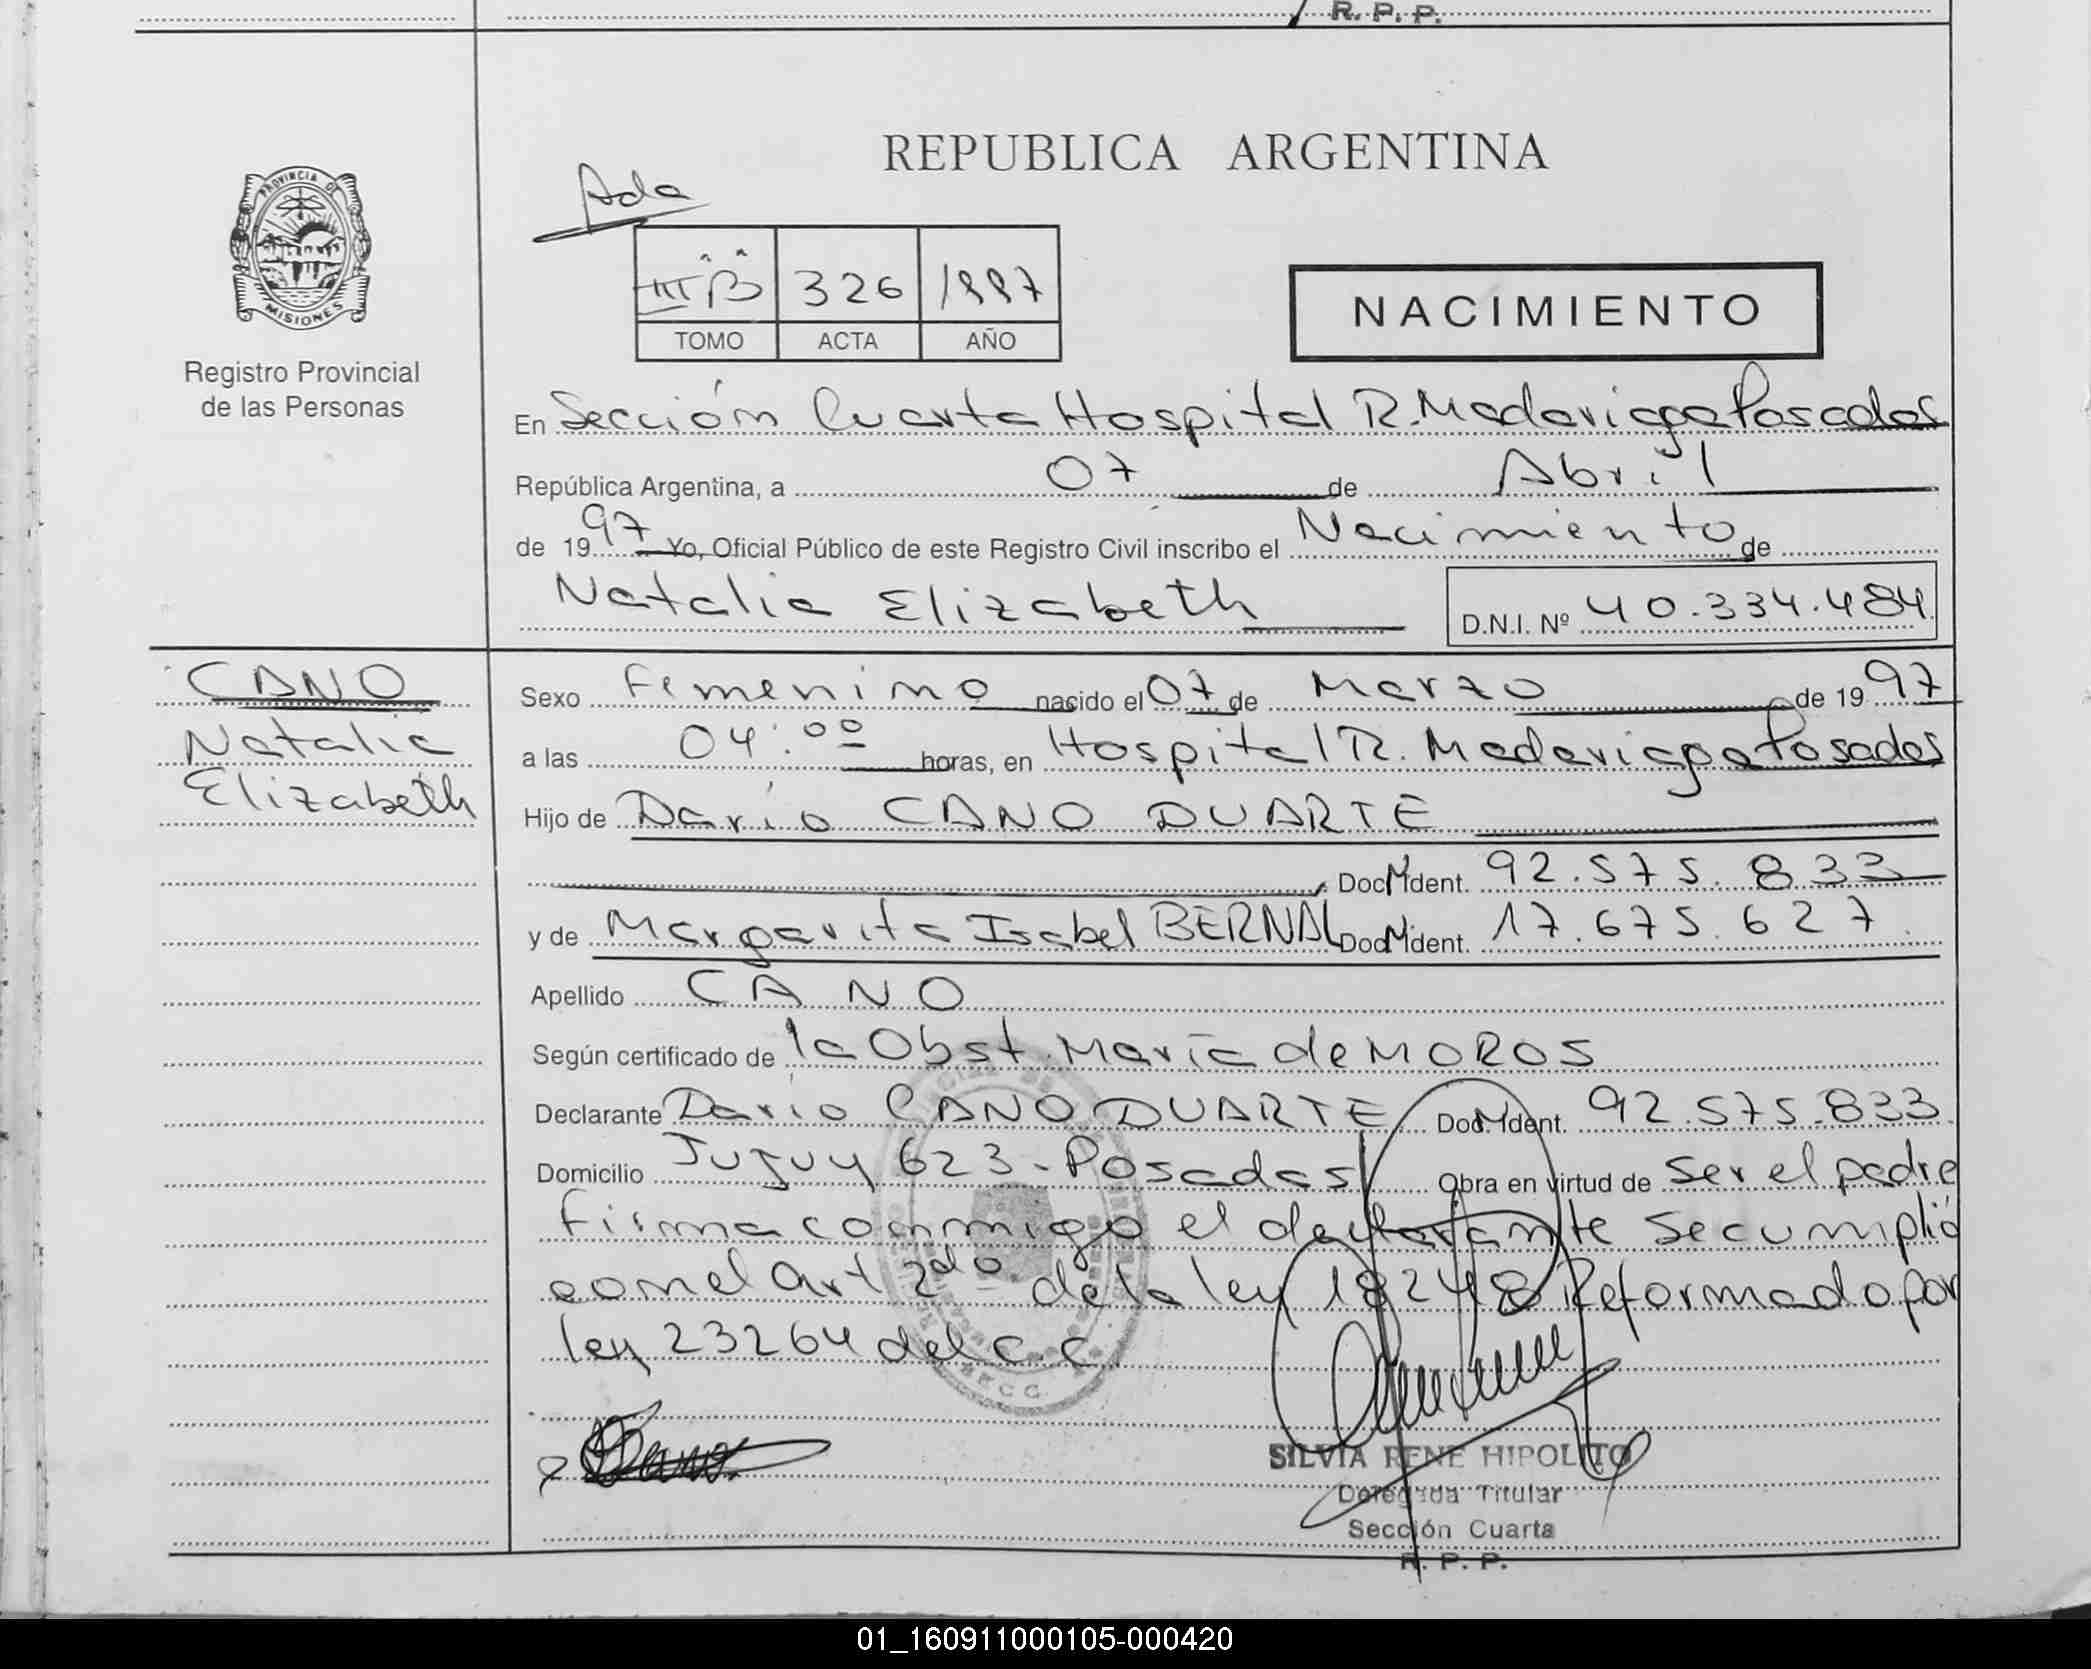 R. P. P.
REPUBLICA ARGENTINA
Ada
PROVINCIA DE
MISIONES
III B 326 1997
TOMO ACTA AÑO
NACIMIENTO
Registro Provincial
de las Personas
En Sección Cuarta Hospital R. Madariaga Posadas
República Argentina, a 07 de Abril
de 1997 Yo, Oficial Público de este Registro Civil inscribo el Nacimiento de
Natalia Elizabeth D.N.I. Nº 40.334.484
CANO
Natalia
Elizabeth
Sexo Femenino nacido el 07 de Marzo de 1997
a las 04:00 horas, en Hospital R. Madariaga Posadas
Hijo de Darío CANO DUARTE
Doc. Ident. 92.575.833
y de Margarita Isabel BERNAL Doc. Ident. 17.675.627
Apellido CANO
Según certificado de la Obst. María de MOROS
Declarante Darío CANO DUARTE Doc. Ident. 92.575.833
Domicilio Jujuy 623 - Posadas Obra en virtud de Ser el padre
firma conmigo el declarante Se cumplió
con el Art 2do de la ley 18248 Reformado por
ley 23264 del C.C.
SILVIA RENE HIPOLITO
Delegada Titular
Sección Cuarta
R. P. P.
01_160911000105-000420